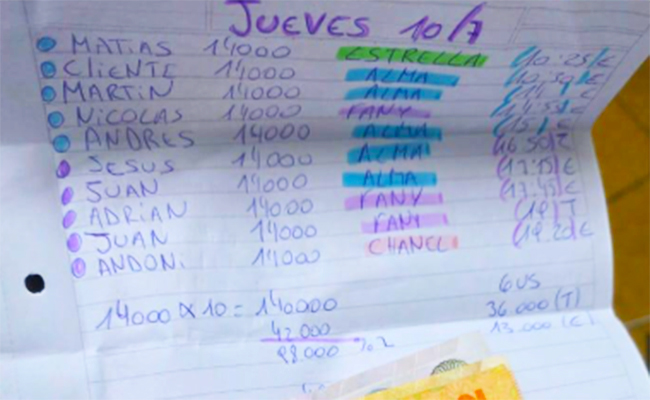 JUEVES 10/7
MATIAS 14000 ESTRELLA (10:25)E
CLIENTE 14000 ALMA
MARTIN 14000 ALMA
NICOLAS 14000 FANY
ANDRES 14000 ALMA
JESUS 14000 ALMA (16:50)T
JUAN 14000 ALMA (17:15)E
ADRIAN 14000 FANY (17:45)E
JUAN 14000 FANY (19)T
ANDONi 14000 CHANEL (19:20)E
14000 x 10 = 140.000
42.000
98.000 %2
6US
36.000 (T)
13.000 (E)